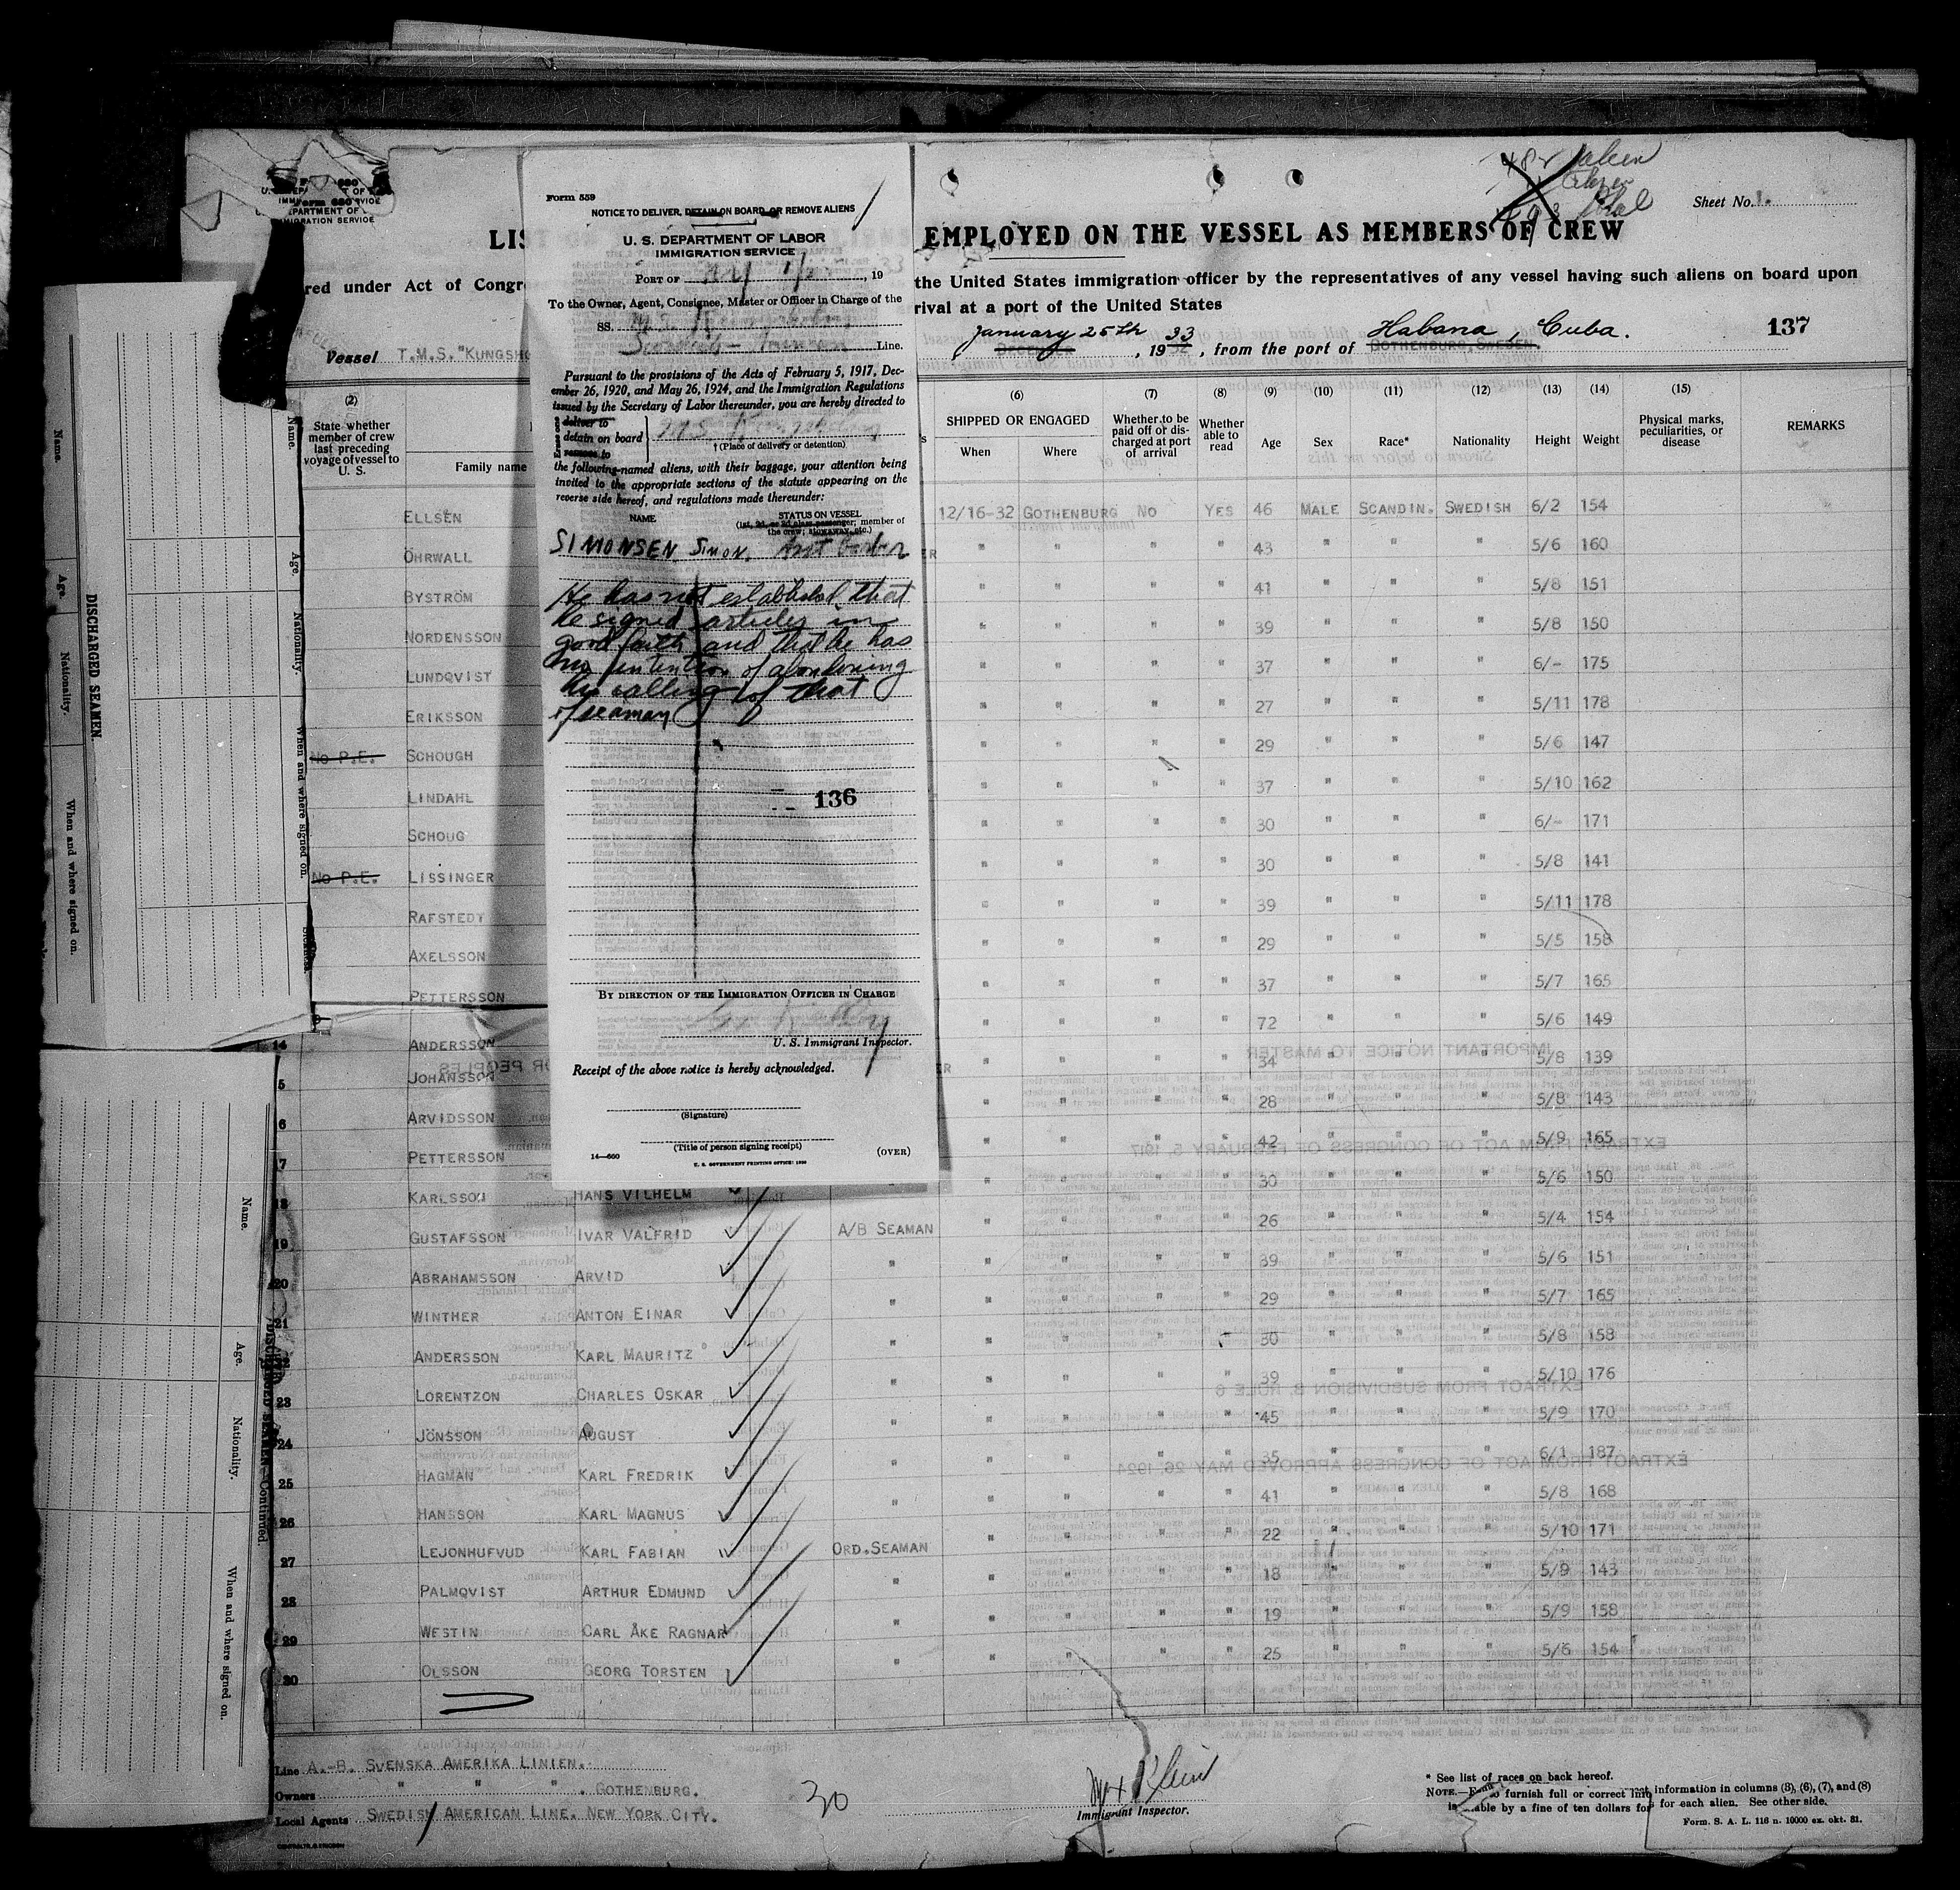 Sheet No. 1.
EMPLOYED ON THE VESSEL AS MEMBERS OF CREW
red under Act of Congr
the United States immigration officer by the representatives of any vessel having such aliens on board upon
rival at a port of the United States
Vessel T.M.S. "KUNGSH
January 25th, 1933, from the port of Habana, Cuba.
GOTHENBURG, SWEDEN
137
Form 559
NOTICE TO DELIVER, DETAIN ON BOARD, OR REMOVE ALIENS
U. S. DEPARTMENT OF LABOR
IMMIGRATION SERVICE
PORT OF N.Y., 19
To the Owner, Agent, Consignee, Master or Officer in Charge of the
SS. M.S. Kungsholm
Line.
Pursuant to the provisions of the Acts of February 5, 1917, Dec-
ember 26, 1920, and May 26, 1924, and the Immigration Regulations
issued by the Secretary of Labor thereunder, you are hereby directed to
deliver to
detain on board M.S. Kungsholm
† (Place of delivery or detention)
remove to
the following-named aliens, with their baggage, your attention being
invited to the appropriate sections of the statute appearing on the
reverse side hereof, and regulations made thereunder:
NAME
STATUS ON VESSEL
(1st, 2d, or 3d class passenger; member of
the crew; stowaway, etc.)
SIMONSEN, Simon. Asst Barber
He has not established that
he signed articles in
good faith and that he has
no intention of abandoning
his calling of that
of seaman
136
BY DIRECTION OF THE IMMIGRATION OFFICER IN CHARGE
U. S. Immigrant Inspector.
Receipt of the above notice is hereby acknowledged.
(Signature)
(Title of person signing receipt)
14—660
U. S. GOVERNMENT PRINTING OFFICE: 1930
(OVER)
(2)
State whether
member of crew
last preceding
voyage of vessel to
U. S.
Family name
(6)
SHIPPED OR ENGAGED
When
Where
(7)
Whether to be
paid off or dis-
charged at port
of arrival
(8)
Whether
able to
read
(9)
Age
(10)
Sex
(11)
Race*
(12)
Nationality
(13)
Height
(14)
Weight
(15)
Physical marks,
peculiarities, or
disease
REMARKS
ELLSEN 12/16-32 GOTHENBURG NO YES 46 MALE SCANDIN. SWEDISH 6/2 154
ÖHRWALL " " " " 43 " " " 5/6 160
BYSTRÖM " " " " 41 " " " 5/8 151
NORDENSSON " " " " 39 " " " 5/8 150
LUNDQVIST " " " " 37 " " " 6/- 175
ERIKSSON " " " " 27 " " " 5/11 178
No P.E. SCHOUGH " " " " 29 " " " 5/6 147
LINDAHL " " " " 37 " " " 5/10 162
SCHOUG " " " " 30 " " " 6/- 171
No P.E. LISSINGER " " " " 30 " " " 5/8 141
RAFSTEDT " " " " 39 " " " 5/11 178
AXELSSON " " " " 29 " " " 5/5 158
PETTERSSON " " " " 37 " " " 5/7 165
14 ANDERSSON " " " " 72 " " " 5/6 149
5 JOHANSSON " " " " 34 " " " 5/8 139
6 ARVIDSSON " " " " 28 " " " 5/8 143
7 PETTERSSON " " " " 42 " " " 5/9 165
18 KARLSSON HANS VILHELM " " " " 30 " " " 5/6 150
19 GUSTAFSSON IVAR VALFRID A/B SEAMAN " " " " 26 " " " 5/4 154
20 ABRAHAMSSON ARVID " " " " " 39 " " " 5/6 151
21 WINTHER ANTON EINAR " " " " " 29 " " " 5/7 165
22 ANDERSSON KARL MAURITZ " " " " " 30 " " " 5/8 158
23 LORENTZON CHARLES OSKAR " " " " " 39 " " " 5/10 176
24 JÖNSSON AUGUST " " " " " 45 " " " 5/9 170
25 HAGMAN KARL FREDRIK " " " " " 35 " " " 6/1 187
26 HANSSON KARL MAGNUS " " " " " 41 " " " 5/8 168
27 LEJONHUFVUD KARL FABIAN ORD. SEAMAN " " " " 22 " " " 5/10 171
28 PALMQVIST ARTHUR EDMUND " " " " " 18 " " " 5/9 143
29 WESTIN CARL ÅKE RAGNAR " " " " " 19 " " " 5/9 158
30 OLSSON GEORG TORSTEN " " " " " 25 " " " 5/6 154
Line A.-B. SVENSKA AMERIKA LINIEN.
Owners " " " . GOTHENBURG.
Local Agents SWEDISH AMERICAN LINE. NEW YORK CITY.
30
Max Klein
Immigrant Inspector.
* See list of races on back hereof.
furnish full or correct information in columns (3), (6), (7), and (8)
by a fine of ten dollars for each alien. See other side.
Form. S. A. L. 116 n. 10000 ex. okt. 31.
DISCHARGED SEAMEN.
Name.
Age.
Nationality.
When and where signed on.
DISCHARGED SEAMEN—Continued
Name.
Age.
Nationality.
When and where signed on.